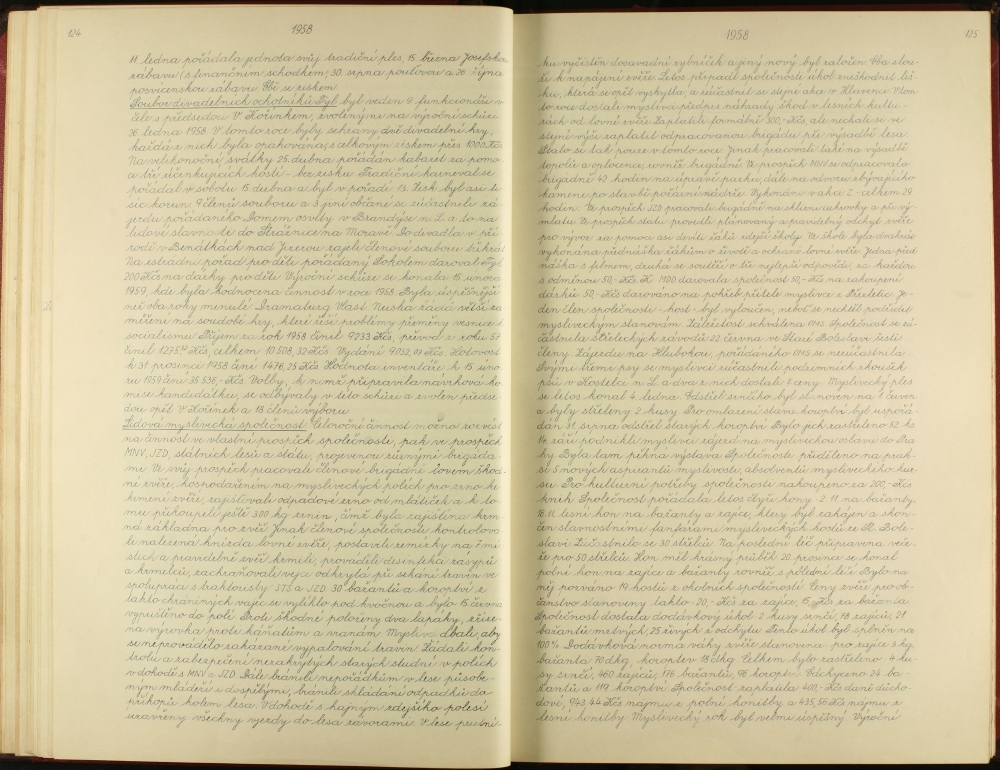 124
1958
11. ledna pořádala jednota svůj tradiční ples, 15. března Josefskou
zábavu (s finančním schodkem), 30. srpna pouťovou a 26. října
posvícenskou zábavu. Obě se ziskem.
Soubor divadelních ochotníků Tyl byl veden 9 funkcionáři v
čele s předsedou V. Kořínkem, zvolenými na výroční schůzi
26. ledna 1958. V tomto roce byly sehrány dvě divadelní hry,
každá z nich byla opakována, s celkovým ziskem přes 1000 Kčs.
Na velikonoční svátky 25. dubna pořádán kabaret za pomo-
ci tří účinkujících hostí - bez zisku. Tradiční karneval se
pořádal v sobotu 15. dubna a byl v pořadí 13. Zisk byl asi ti-
síc korun. 9 členů souboru a 3 jiní občané se zúčastnili zá-
jezdu pořádaného Domem osvěty v Brandýse n. L. a to na
lidové slavnosti do Strážnice na Moravě. Do divadla v pří-
rodě v Benátkách nad Jizerou zajeli členové souboru třikrát.
Na estrádní pořad pro děti pořádaný Sokolem daroval Tyl
200 Kčs na dárky pro děti. Výroční schůze se konala 15. února
1959, kde byla hodnocena činnost v roce 1958. Byla úspěšnější
než oba roky minulé. Dramaturg Vlast. Ruska žádá větší za-
měření na soudobé hry, které řeší problémy přeměny vesnice k
socialismu. Příjem za rok 1958 činil 9233 Kčs, převod z roku 57
činil 1275 Kčs, celkem 10 508,32 Kčs. Vydání 9032,07 Kčs. Hotovost
k 31. prosinci 1958 činí 1476,25 Kčs. Hodnota inventáře k 15. úno-
ru 1959 činí 35 536,- Kčs. Volby, k nimž připravila návrhová ko-
mise kandidátku, se odbývaly v této schůzi a zvolen předse-
dou opět V. Kořínek a 13 členů výboru.
Lidová myslivecká společnost. Celoroční činnost možno rozvésti
na činnost ve vlastní prospěch společnosti, pak ve prospěch
MNV, JZD, státních lesů a státu, projevenou různými brigáda-
mi. Ve svůj prospěch pracovali členové brigádně lovem škod-
né zvěře, hospodařením na mysliveckých polích pro zrno ke
krmení zvěře, zajišťovali odpadové zrno od mlátiček a k to-
mu přikoupili ještě 300 kg zrnin, čímž byla zajištěna krm-
ná základna pro zvěř. Jinak členové společnosti kontrolova-
li nalezená hnízda lovné zvěře, postavili remízky na 7 mí-
stech a pravidelně zvěř krmili, prováděli desinfekci zásypů
a krmelců, zachraňovali vejce odkrytá při sekání travin ve
spolupráci s traktoristy STS a JZD. 30 bažantů a koroptví z
takto chráněných vajec se vylíhlo pod kvočnou a bylo 15. června
vypuštěno do polí. Proti škodné položeny dva lapáky, zříze-
na výrovka proti káňatům a vranám. Myslivci dbali, aby
se neprovádělo zakázané vypalování travin. Žádali kon-
trolu a zabezpečení nezakrytých starých studní v polích
v dohodě s MNV a JZD. Dále bránili nepořádkům v lese působe-
ným mládeží i dospělými, bránili skládání odpadků do
příkopů kolem lesa. V dohodě s hajným zdejšího polesí
uzavřeny všechny vjezdy do lesa závorami. V lese prutní-
1958
125
ku vyčištěn dosavadní rybníček a jiný nový byl založen. Oba slou-
ží k napájení zvěře. Letos připadl společnosti úkol zneškodnit liš-
ku, která se opět vyskytla, a zúčastnit se stejné akce v Hlavenci. V tom-
to roce dostali myslivci předpis náhrady škod v lesních kultu-
rách od lovné zvěře. Zaplatili formálně 300,- Kčs, ale nechali si ve
stejné výši zaplatit odpracovanou brigádu při výsadbě lesa.
Stalo se tak pouze v tomto roce. Jinak pracovali také na výsadbě
topolů a oplocence, rovněž brigádně. Ve prospěch MNV se odpracovalo
brigádně 42 hodin na úpravě parku, dále na odvozu zbývajícího
kamene po stavbě požární nádrže. Vykonáno v akci Z - celkem 29
hodin. Ve prospěch JZD pracovali brigádně na sklizni cukrovky a při vý-
mlatu. Ve prospěch státu provedli plánovaný a pravidelný odchyt zvěře
pro vývoz za pomoci asi devíti žáků zdejší školy. Ve škole byla dvakrát
vykonána přednáška žákům o životě a ochraně lovné zvěře. Jedna před-
náška s filmem, druhá se soutěží o tři nejlepší odpovědi, za každou
s odměnou 50,- Kčs. K MDD darovala společnost 50,- Kčs na zakoupení
dárků. 50,- Kčs darováno na pohřeb přítele myslivce z Dřetelic. Je-
den člen společnosti - host - byl vyloučen, neboť se nechtěl podřídit
mysliveckým stanovám. Záležitost schválena OMS. Společnost se zú-
častnila střeleckých závodů 22. června ve Staré Boleslavi šesti
členy. Zájezdu na Hlubokou, pořádaného OMS se nezúčastnila.
Svými třemi psy se myslivci zúčastnili podzimních zkoušek
psů v Kostelci n. L. a dva z nich dostali I. ceny. Myslivecký ples
se letos konal 4. ledna. Odstřel srnčího byl stanoven na 1. červen
a byly střeleny 2 kusy. Pro omlazení stavu koroptví byl uspořá-
dán 31. srpna odstřel starých koroptví. Bylo jich zastřeleno 52 ks.
14. září podnikli myslivci zájezd na mysliveckou oslavu do Pra-
hy. Byla tam pěkná výstava. Společnosti přiděleno na prak-
si 5 nových aspirantů myslivosti, absolventů mysliveckého kur-
su. Pro kulturní potřeby společnosti nakoupeno za 200,- Kčs
knih. Společnost pořádala letos čtyři hony - 2.11. na bažanty,
16.11. lesní hon na bažanty a zajíce, který byl zahájen a skon-
čen slavnostními fanfárami mysliveckých hochů ze St. Bole-
slavi. Zúčastnilo se 30 střelců. Na poslední leč připravena veče-
ře pro 50 střelců. Hon měl krásný průběh. 20. prosince se konal
polní hon na zajíce a bažanty rovněž s poslední lečí. Bylo na
něj pozváno 19 hostů z okolních společností. Ceny zvěře pro ob-
čanstvo stanoveny takto: 20,- Kčs za zajíce, 15,- Kčs za bažanta.
Společnost dostala dodávkový úkol 2 kusy srnčí, 78 zajíců, 21
bažantů mrtvých, 25 živých z odchytu. Tento úkol byl splněn na
100%. Dodávková norma váhy zvěře stanovena: pro zajíce 3 kg,
bažanta 70 dkg, koroptev 18 dkg. Celkem bylo zastřeleno: 4 ku-
sy srnčí, 460 zajíců, 176 bažantů, 96 koroptví. Odchyceno 24 ba-
žantů a 119 koroptví. Společnost zaplatila 400,- Kčs daně důcho-
dové, 943,44 Kčs nájmu z polní honitby a 435,56 Kčs nájmu z
lesní honitby. Myslivecký rok byl velmi úspěšný. Výroční